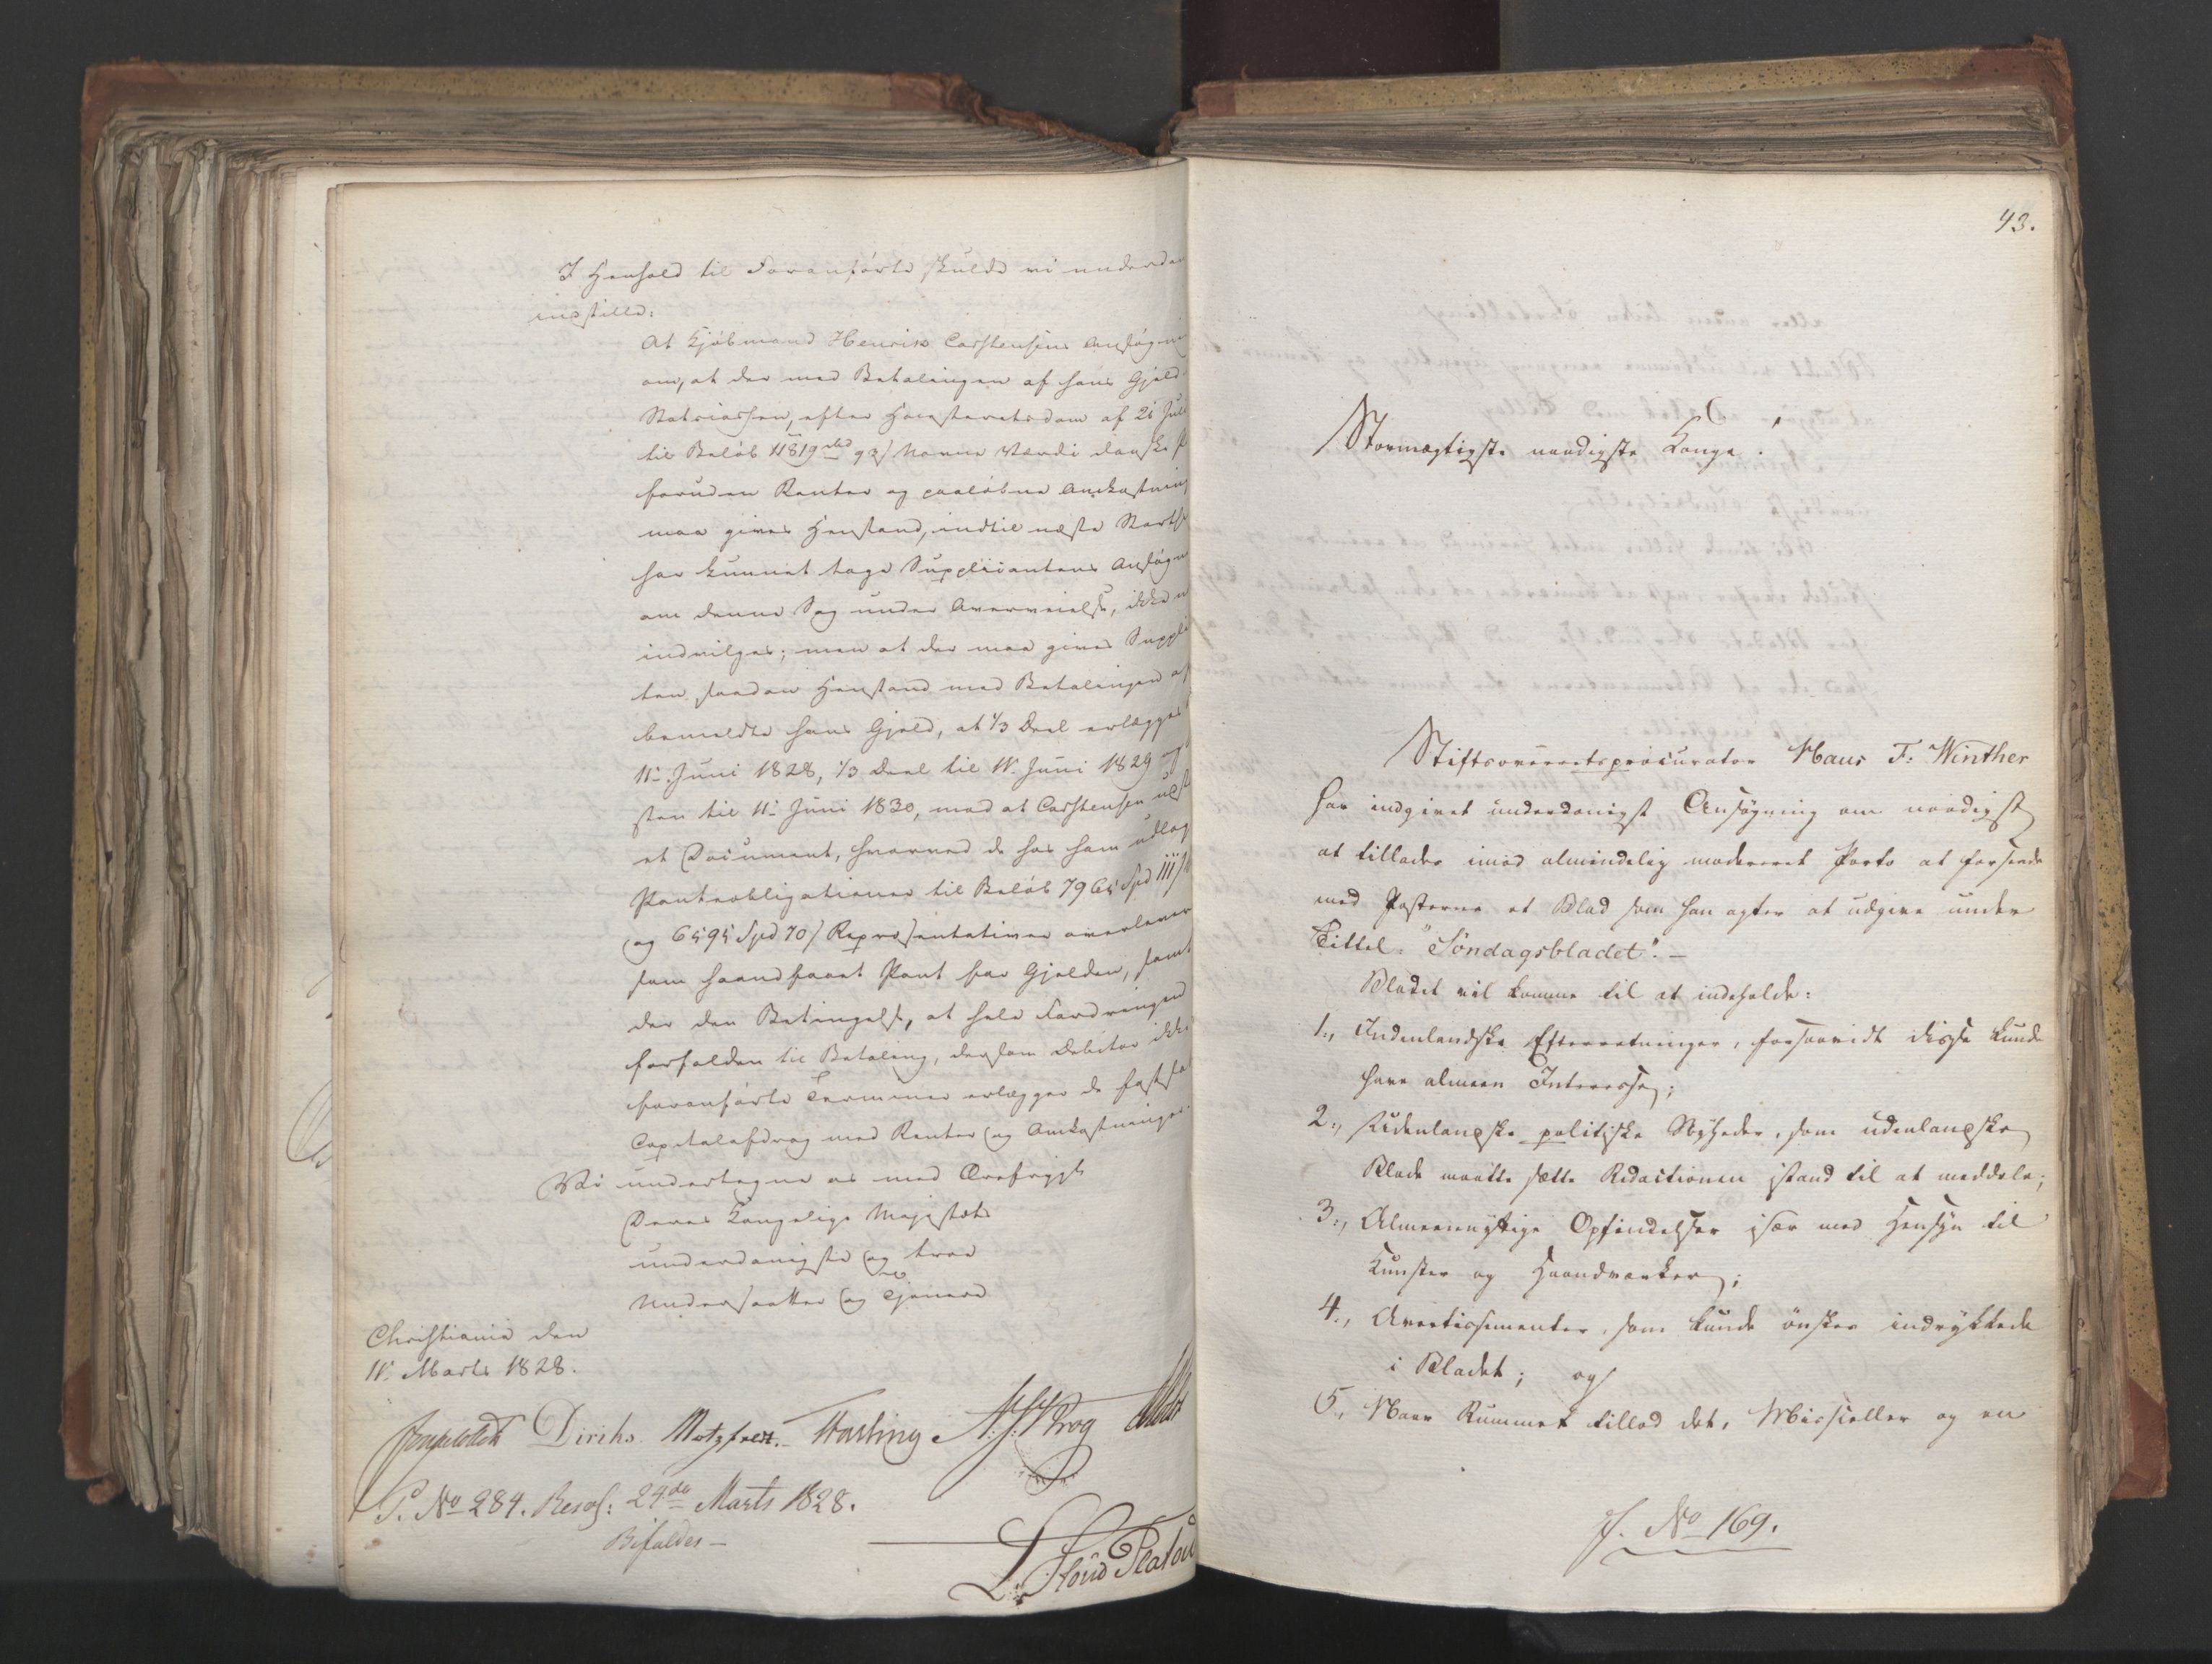 I Henhold til Foranførte skulde vi underda
indstille:
At Kjøbmand Henrik Carstensens Ansøgni
om, at der med Betalingen af hans Gjeld
Statscassen, efter Høiesteretsdom af 21 Jul
til Beløb 11819 rbd 92/ Navne Værdi danske
foruden Renter og paaløbne Omkostning
maa gives Henstand, indtil næste Storth
har kunnet tage Supplicantens Ansøgn
om denne Sag under Overveielse, ikke
indvilges; men at der maa gives Suppli
ten saadan Henstand med Betalingen af
bemeldte hans Gjeld, at 1/3 Deel erlægges
11 Juni 1828, 1/3 Deel til 11 Juni 1829 og
sten til 11 Juni 1830, mod at Carstensen
et Document, hvorved de hos ham udlag
Pantobligationer til Beløb 7965 Spd
og 6595 Spd 70/ Repræsentativer overlever
som haandfaaet Pant for Gjelden, samt
der den Betingelse, at hele Fordringen
forfalden til Betaling, dersom Debitor ikke
foranførte Terminer erlægger de fastsa
Capitalafdrag med Renter og Omkostninger.
Vi undertegne os med Ærefrygt
Deres Kongelige Majestæts
underdanigste og troe
Undersaatter og Tjenere
Christiania den
11 Marts 1828.
Diriks Motzfeldt. Fasting N. J. Krog
P. No 284. Resol: 24de Marts 1828.
Bifaldes —
L. Stoud Platou
43.
Stormægtigste naadigste Konge!
Stiftsoverretsprocurator Hans T. Winther
har indgivet underdanigst Ansøgning om naadigst
at tillades imod almindelig modereret Porto at forsende
med Posterne et Blad som han agter at udgive under
Tittel: "Söndagsbladet". —
Bladet vil komme til at indeholde:
1., Indenlandske Efterretninger, forsaavidt disse kunde
have almeen Interesse;
2., Udenlandske politiske Nyheder, som udenlandske
Blade maatte sætte Redactionen istand til at meddele;
3., Almeennyttige Opfindelser især med Hensyn til
Kunster og Haandværker;
4., Avertissementer, som kunde ønskes indrykkede
i Bladet; og
5., Naar Rummet tillod det, Misceller og en
J. No 169.